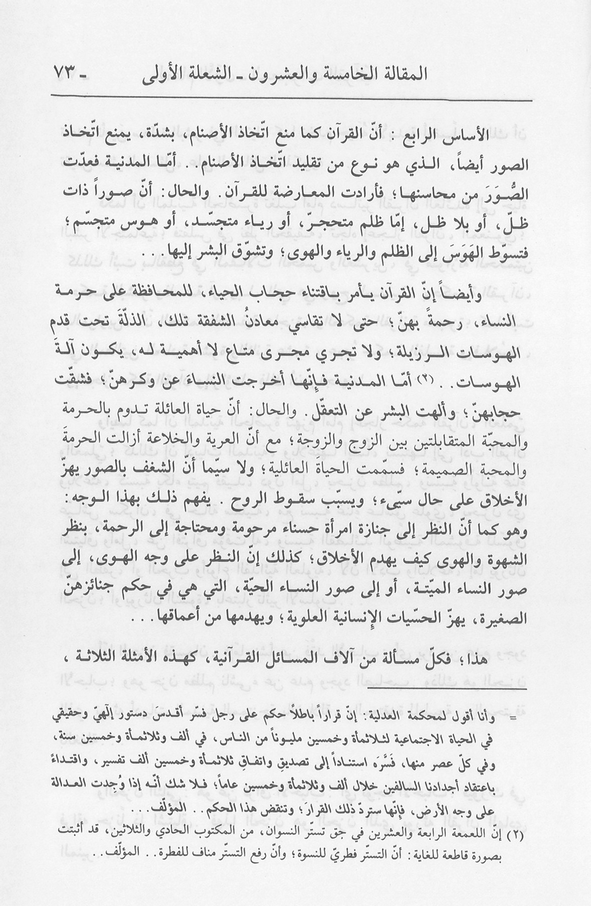 المقالة الخامسة والعشرون ـ الشعلة الأولى ـ ٧٣
الأساس الرابع : أنّ القرآن كما منع اتّخاذ الأصنام، بشدّة، يمنع اتّخاذ
الصور أيضاً، الـذي هو نوع من تقليد اتّخاذ الأصنام.. أمّا المدنية فعدّت
الصُّوَرَ من محاسنها؛ فأرادت المعارضة للقرآن. والحال: أنّ صوراً ذات
ظلّ، أو بلا ظل، إمّا ظلم متحجرّ، أو رياء متجسّد، أو هوس متجسّم؛
فتسوّط الهَوَسَ إلى الظلم والرياء والهوى؛ وتشوّق البشر إليها...
وأيضـاً إنّ القرآن يـأمر بـاقتناء حجـاب الحياء، للمحـافظة على حرمـة
النساء، رحمةً بهنّ؛ حتى لا تقاسي معادنُ الشفقة تلك، الذلّةَ تحت قدم
الهوسات الـرزيلة؛ ولا تجري مجـرى متاع لا أهميـة لـه، يكـون آلـةَ
الهوسات.. (٢) أمّا المدنية فإنّها أخرجت النساءَ عن وكرهنّ؛ فشقّت
حجابهنّ؛ وألهت البشر عن التعقّل. والحال: أنّ حياة العائلة تدوم بالحرمة
والمحبّة المتقابلتين بين الزوج والزوجة؛ مع أنّ العرية والخلاعة أزالت الحرمةَ
والمحبة الصميمة؛ فسمّمت الحياةَ العائلية؛ ولا سيّما أنّ الشغف بالصور يهزّ
الأخلاق على حال سيّىء؛ ويسبّب سقوط الروح. يفهم ذلـك بهذا الـوجه:
وهو كما أنّ النظر إلى جنازة امرأة حسناء مرحومة ومحتاجة إلى الرحمة، بنظر
الشهوة والهوى كيف يهدم الأخلاق؛ كذلك إنّ النـظر على وجه الهـوى، إلى
صور النساء الميّتـة، أو إلى صور النسـاء الحيّة، التي هي في حكم جنـائزهنّ
الصغيرة، يهزّ الحسّيات الإنسانية العلوية؛ ويهدمها من أعماقها...
هذا؛ فكلّ مسـألة من آلاف المسـائل القـرآنية، كهـذه الأمثلة الثلاثـة،
= وأنا أقول لمحكمة العدلية: إنّ قراراً باطلاً حكم على رجل فسّر أقدسَ دستور إلٰهيّ وحقيقي
في الحياة الاجتماعية لثلاثمأة وخمسين مليونـاً من الناس، في ألف وثلاثمـأة وخمسين سنة،
وفي كلّ عصر منها، فسَّرَه استنـاداً إلى تصديق واتفـاق ثلاثمأة وخمسين ألف تفسير، واقتداءً
باعتقاد أجدادنا السالفين خلال ألف وثلاثمأة وخمسين عاماً؛ فلا شك أنّه إذا وُجدت العدالة
على وجه الأرض، فإنّها ستردّ ذلك القرارَ؛ وتنقض هذا الحكم.. المؤلّف...
(٢) إنّ اللمعمة الرابعة والعشرين في حق تستّر النسوان، من المكتوب الحادي والثلاثين، قد أثبتت
بصورة قاطعة للغاية: أنّ التستّر فطريّ للنسوة؛ وأنّ رفع التستّر مناف للفطرة.. المؤلّف..